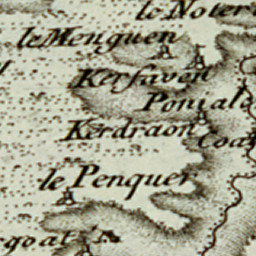 le Noter
le Menguen
Kersaven
Ponial
Kerdraon
Coa
le Penquer
rgoat